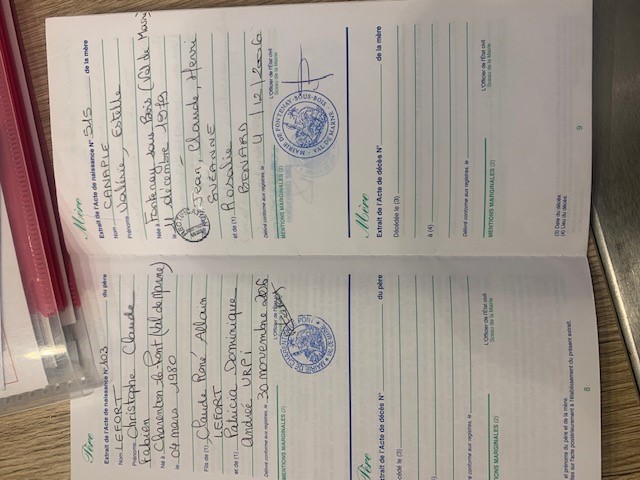 Père
Extrait de l'Acte de naissance N° 103 du père
Nom LEFORT
Prénoms Christophe Claude
Fabien
Né à Charenton-le-Pont (Val de Marne)
le 04 mars 1980
Fils de (1) Claude René Allain
LEFORT
et de (1) Patricia Dominique
Andrée URPI
Délivré conforme aux registres, le 30 novembre
MENTIONS MARGINALES (2)
L'Officier de l'État civil
Père
Extrait de l'Acte de décès N° du père
Décédé le (3)
à (4)
Délivré conforme aux registres, le
MENTIONS MARGINALES (2)
L'Officier de l'État civil
Sceau de la Mairie
prénoms du père et de la mère.
actes postérieurement à l'établissement du présent extrait.
8
Mère
Extrait de l'Acte de naissance N° 515 de la mère
Nom CANAPLE
Prénoms Valérie, Estelle
Née à Fontenay sous Bois (Val de Marne)
le décembre 1979
Jean, Claude, Henri
et de (1) Rosalie
BONARD
Délivré conforme aux registres, le 4/12/2006
MENTIONS MARGINALES (2)
L'Officier de l'État civil
Sceau de la Mairie
MAIRIE DE FONTENAY-SOUS-BOIS
VAL DE MARNE
Mère
Extrait de l'Acte de décès N° de la mère
Décédée le (3)
à (4)
Délivré conforme aux registres, le
MENTIONS MARGINALES (2)
L'Officier de l'État civil
Sceau de la Mairie
(3) Date du décès.
(4) Lieu du décès.
9